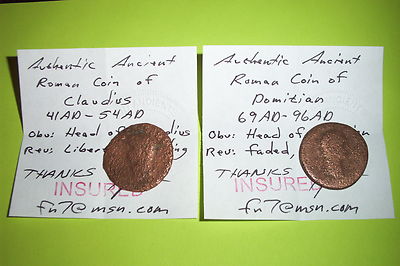 Authentic Ancient
Roman Coin of
Claudius
41AD-54AD
Obv: Head of
Rev:
THANKS
INSURED
fn7@msn.com
Authentic Ancient
Roman Coin of
Domitian
69AD-96AD
Obv: Head of
Rev: Faded,
THANKS
INSURED
fn7@msn.com